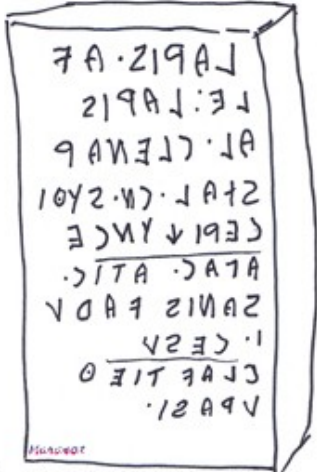 LAPIS·AF
LE:LAPIS
AL·CLENAP
SFAL·CN·SYOI
CEPI↓YNCE
APAC·ATIC·
SANIS FAOV
I·CESV
CLAF TIE O
VPASI·